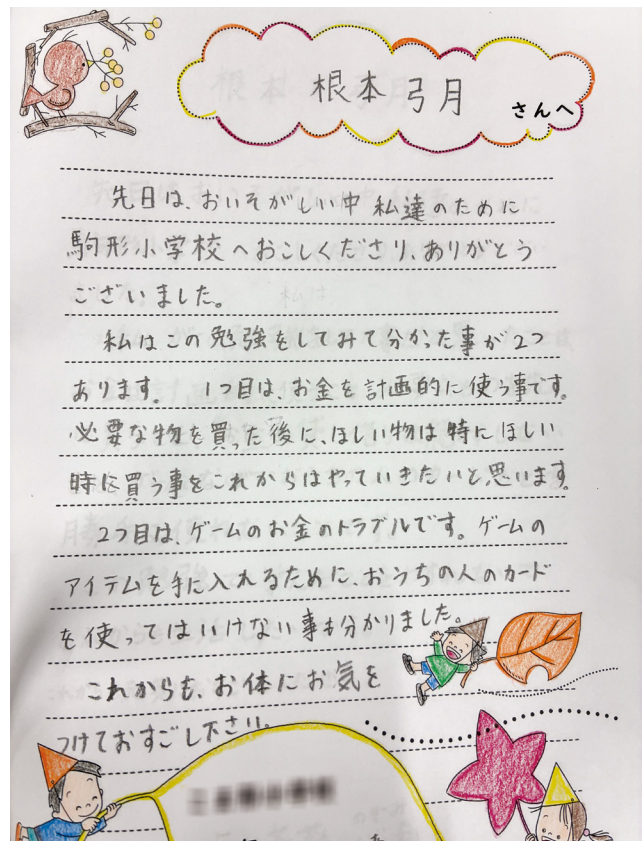 根本弓月
さんへ
先日は、おいそがしい中 私達のために
駒形小学校へおこしくださり、ありがとう
ございました。
私はこの勉強をしてみて分かった事が2つ
あります。 1つ目は、お金を計画的に使う事です。
必要な物を買った後に、ほしい物は特にほしい
時に買う事をこれからはやっていきたいと思います。
2つ目は、ゲームのお金のトラブルです。ゲームの
アイテムを手に入れるために、おうちの人のカード
を使ってはいけない事も分かりました。
これからも、お体にお気を
つけておすごし下さい。